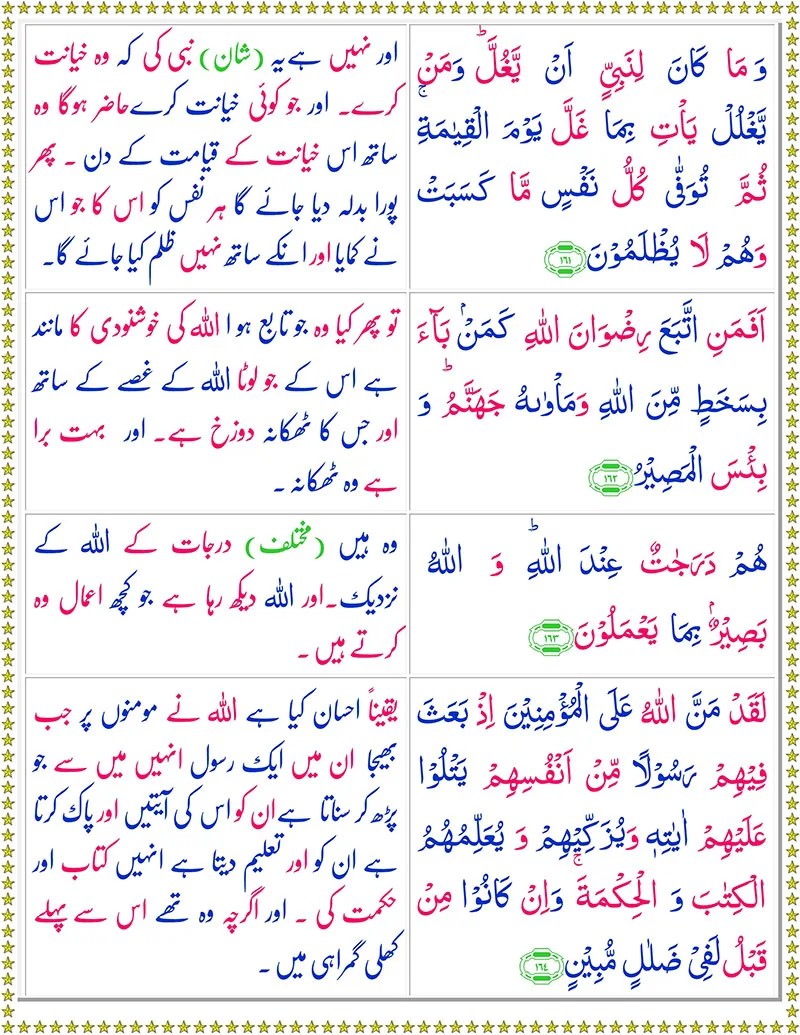 وَ مَا كَانَ لِنَبِیٍّ اَنْ یَّغُلَّ ؕ وَمَنْ
یَّغْلُلْ یَاْتِ بِمَا غَلَّ یَوْمَ الْقِیٰمَةِ ۚ
ثُمَّ تُوَفّٰی كُلُّ نَفْسٍ مَّا كَسَبَتْ
وَهُمْ لَا یُظْلَمُوْنَ ۝۱۶۱
اور نہیں ہے یہ (شان) نبی کی کہ وہ خیانت
کرے۔ اور جو کوئی خیانت کرے حاضر ہوگا وہ
ساتھ اس خیانت کے قیامت کے دن ۔ پھر
پورا بدلہ دیا جائے گا ہر نفس کو اس کا جو اس
نے کمایا اور انکے ساتھ نہیں ظلم کیا جائے گا۔
اَفَمَنِ اتَّبَعَ رِضْوَانَ اللّٰهِ كَمَنْۢ بَآءَ
بِسَخَطٍ مِّنَ اللّٰهِ وَمَاْوٰىهُ جَهَنَّمُ ؕ وَ
بِئْسَ الْمَصِیْرُ ۝۱۶۲
تو پھر کیا وہ جو تابع ہوا اللہ کی خوشنودی کا مانند
ہے اس کے جو لوٹا اللہ کے غصے کے ساتھ
اور جس کا ٹھکانہ دوزخ ہے۔ اور بہت برا
ہے وہ ٹھکانہ ۔
هُمْ دَرَجٰتٌ عِنْدَ اللّٰهِ ؕ وَ اللّٰهُ
بَصِیْرٌۢ بِمَا یَعْمَلُوْنَ ۝۱۶۳
وہ ہیں (مختلف) درجات کے اللہ کے
نزدیک۔ اور اللہ دیکھ رہا ہے جو کچھ اعمال وہ
کرتے ہیں ۔
لَقَدْ مَنَّ اللّٰهُ عَلَی الْمُؤْمِنِیْنَ اِذْ بَعَثَ
فِیْهِمْ رَسُوْلًا مِّنْ اَنْفُسِهِمْ یَتْلُوْا
عَلَیْهِمْ اٰیٰتِهٖ وَیُزَكِّیْهِمْ وَ یُعَلِّمُهُمُ
الْكِتٰبَ وَ الْحِكْمَةَ ۚ وَاِنْ كَانُوْا مِنْ
قَبْلُ لَفِیْ ضَلٰلٍ مُّبِیْنٍ ۝۱۶۴
یقیناً احسان کیا ہے اللہ نے مومنوں پر جب
بھیجا ان میں ایک رسول انہیں میں سے جو
پڑھ کر سناتا ہے ان کو اس کی آیتیں اور پاک کرتا
ہے ان کو اور تعلیم دیتا ہے انہیں کتاب اور
حکمت کی ۔ اور اگرچہ وہ تھے اس سے پہلے
کھلی گمراہی میں ۔